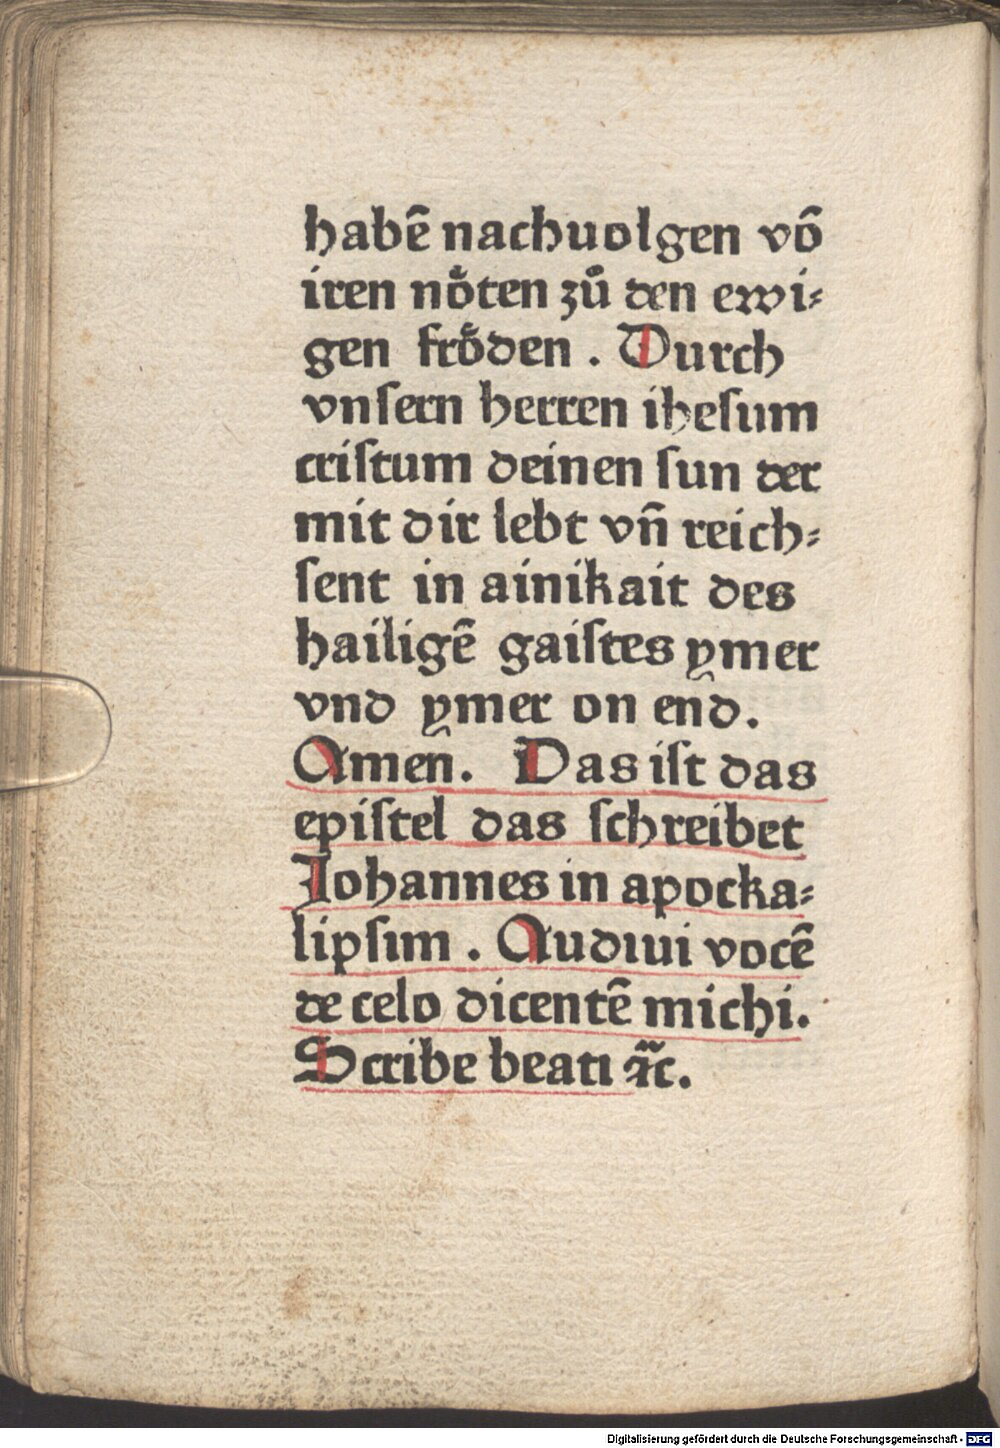 habē nachuolgen vō
iren nöten zů den ewi⸗
gen fröden . Durch
vnſern herren iheſum
criſtum deinen ſun der
mit dir lebt vn̄ reich⸗
ſent in ainikait des
hailigē gaiſtes ymer
vnd ymer on end.
Amen. Das iſt das
epiſtel das ſchreibet
Johannes in apocka⸗
lipſim . Audiui vocē
de celo dicentē michi.
Scribe beati ꝛc̄.
Digitalisierung gefördert durch die Deutsche Forschungsgemeinschaft - DFG